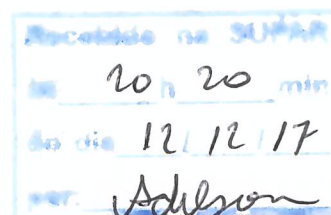 Recebido na SUPAR
às 20 h 20 min
do dia 12/12/17
por: Adilson